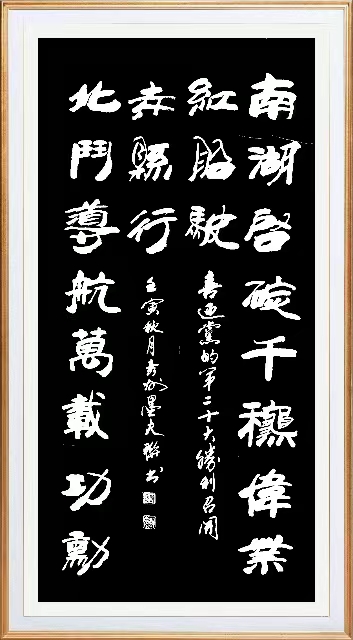 南湖啓碇千龝偉業
紅船駛
喜迎黨的第二十大勝利召開
北鬥導航萬載功勳
赤縣行
壬寅秋月墨夫书